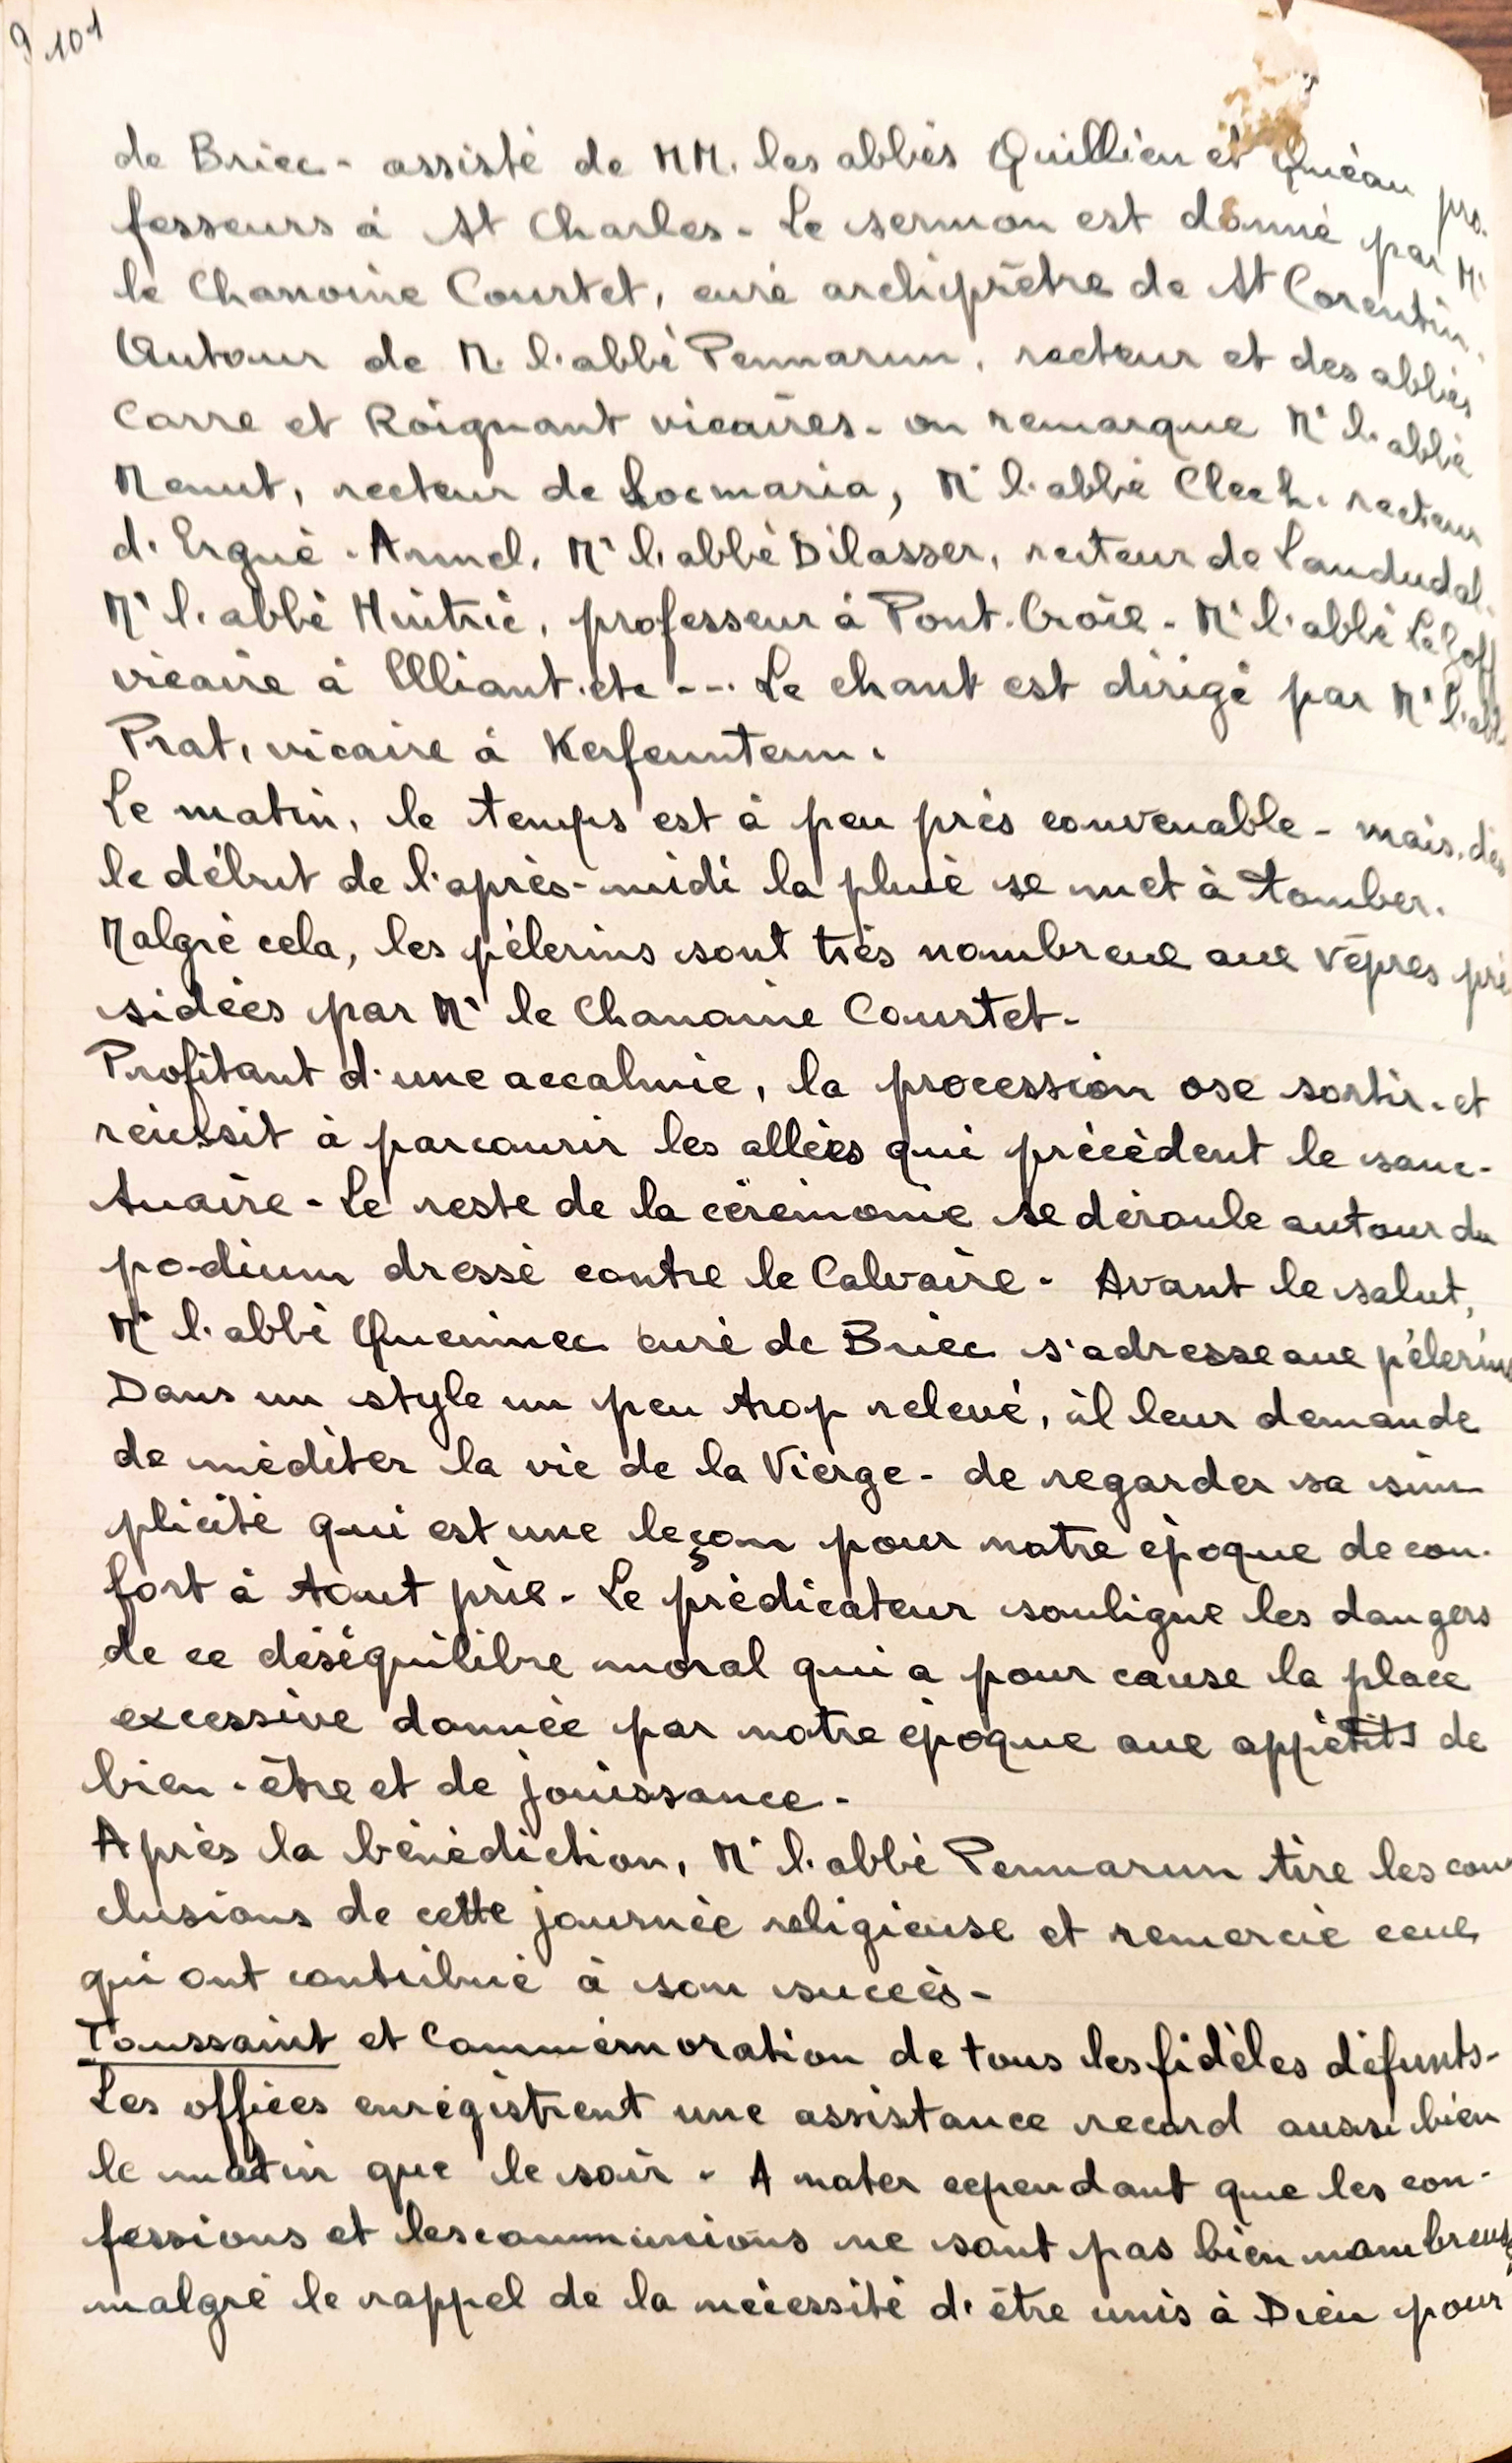 101
de Briec - assisté de MM. les abbés Quillien et Quéau pro.
fesseurs à St Charles - Le sermon est donné par Mr
le Chanoine Courtet, curé archiprêtre de St Corentin.
Autour de M. l'abbé Pennarun, recteur et des abbés
Carre et Roignant vicaires - on remarque Mr l'abbé
Menut, recteur de Locmaria, Mr l'abbé Clech. recteur
d'Ergué-Armel, Mr l'abbé Dilasser, recteur de Landudal.
Mr l'abbé Huitric, professeur à Pont-Croix - Mr l'abbé Le Goff
vicaire à Elliant. etc --- Le chant est dirigé par Mr l'abb
Prat, vicaire à Kerfeunteun.
Le matin, le temps est à peu près convenable - mais, dès
le début de l'après-midi la pluie se met à tomber.
Malgré cela, les pèlerins sont très nombreux aux Vêpres pré
sidées par Mr le Chanoine Courtet -
Profitant d'une accalmie, la procession ose sortir - et
réussit à parcourir les allées qui précèdent le sanc-
tuaire - Le reste de la cérémonie se déroule autour du
po-dium dressé contre le Calvaire - Avant le salut,
Mr l'abbé Queinnec curé de Briec s'adresse aux pèlerins
Dans un style un peu trop relevé, il leur demande
de méditer la vie de la Vierge - de regarder sa sim
plicité qui est une leçon pour notre époque de con-
fort à tout prix - Le prédicateur souligne les dangers
de ce déséquilibre moral qui a pour cause la place
excessive donnée par notre époque aux appétits de
bien-être et de jouissance -
Après la bénédiction, Mr l'abbé Pennarun tire les con
clusions de cette journée religieuse et remercie ceux
qui ont contribué à son succès -
Toussaint et Commémoration de tous les fidèles défunts -
Les offices enregistrent une assistance record aussi bien
le matin que le soir - A noter cependant que les con-
fessions et les communions ne sont pas bien nombreuses
malgré le rappel de la nécessité d'être unis à Dieu pour